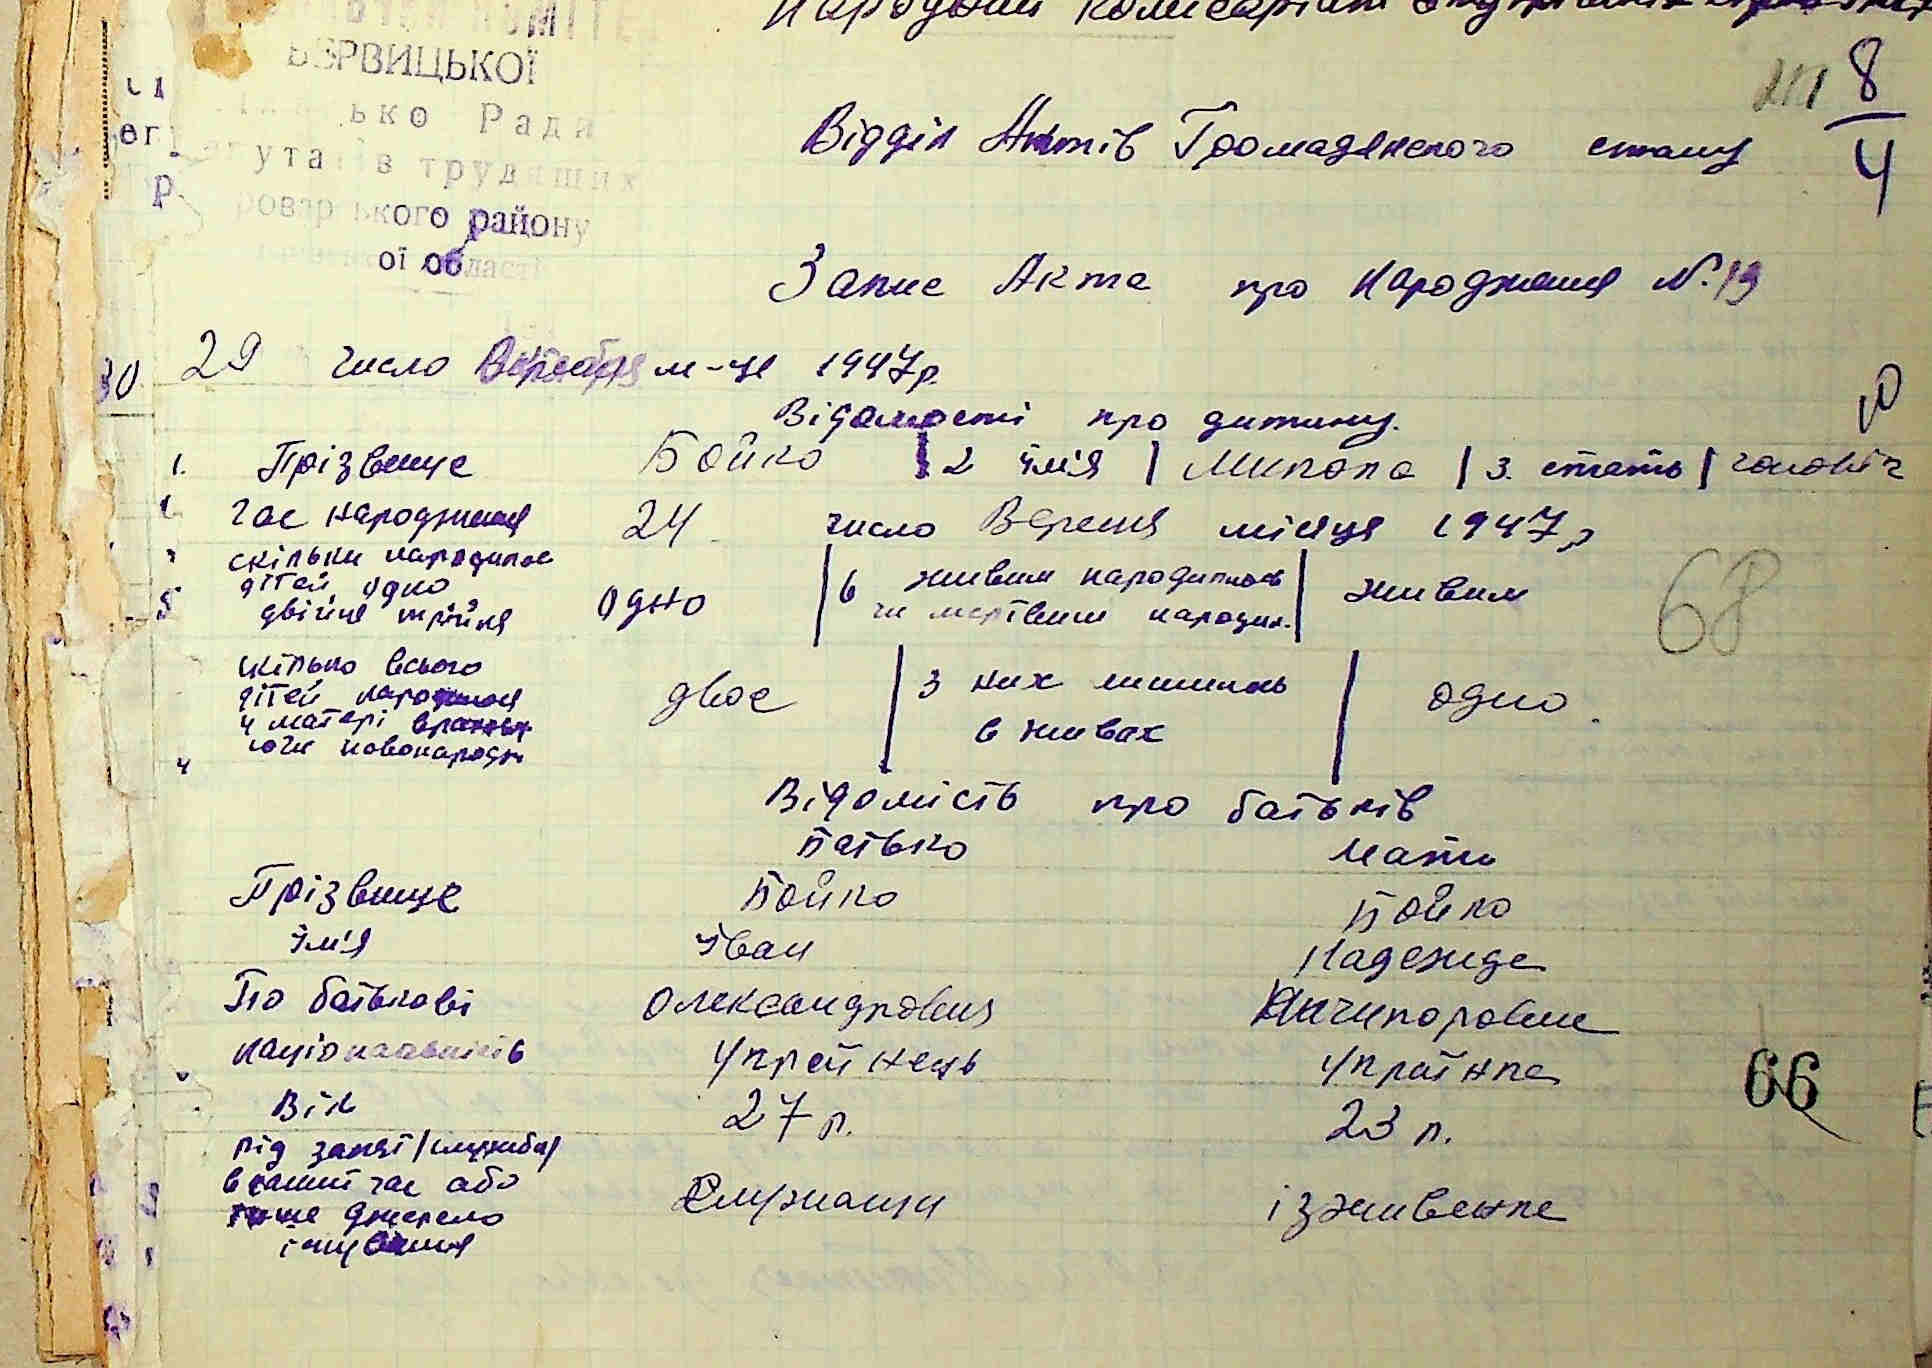 Народний комісаріат внутрішніх справ
БЕРВИЦЬКОЇ
Рада
утатів трудящих
роварського району
ої області
8
4
Відділ Актів Громадянського стану
Запис Акта про народження №.19
29 число Октября м-ця 1947р.
Відомості про дитину.
1. Прізвище Бойко 2 імя Микола 3. стать чоловіч
Час народження 24 число Вересня місяця 1947р
скільки народилос
дітей одно
двійня трійня
5 одно
6 живим народилось
чи мертвим народил.
живим
скілько всього
дітей народилося
у матері враховую
ючи новонародж
двоє
з них лишилось
в живах
одно.
68
Відомість про батьків
Батько Мати
Прізвище Бойко Бойко
Імя Іван Надежда
По батькові Олександрович Ничипоровна
Національність Украйнець Украінка
66
Вік 27 р. 23 р.
під заняі /служба/
в даний час або
інше джерело
існування
Служащий
ізживенка